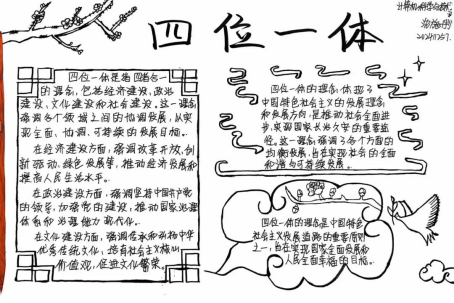 四位一体
四位一体是指四合为一
的理念,包括经济建设,政治
建设,文化建设和社会建设。这一理念
强调各个领域之间的协调发展,从实
现全面、协调、可持续的发展目标。
在经济建设方面,强调改革开放,创
新驱动,绿色发展等,推动经济发展和
提高人民生活水平。
在政治建设方面,强调坚持中国共产党
的领导,加强党的建设,推动国家治理
体系和治理能力现代化。
在文化建设方面,强调传承和弘扬中华
优秀传统文化,培育社会主义核心
价值观,促进文化繁荣。
四位一体的理念,体现了
中国特色社会主义的发展理念
和发展方向,是推动社会全面进
步,实现国家长治久安的重要途
径。这一理念,强调了各个方面的
均衡发展,旨在实现社会的全面
和谐与可持续发展。
四位一体的理念是中国特色
社会主义发展道路的重要原则
之一,旨在实现国家全面发展和
人民全面幸福的目标。